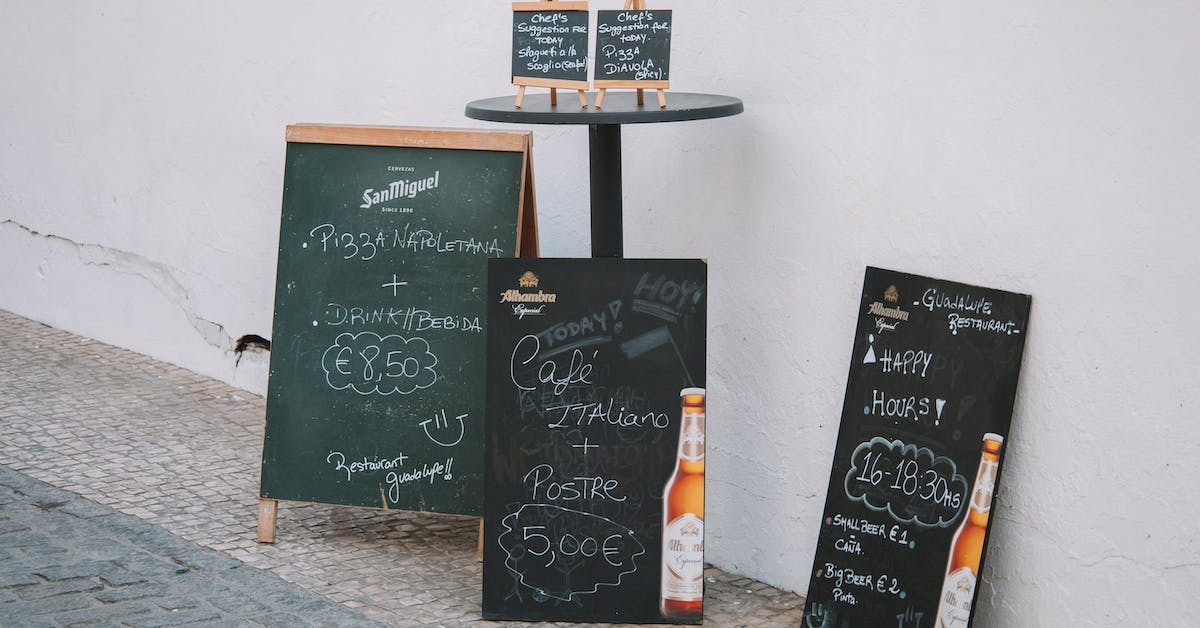 Chef's
Suggestion FOR
TODAY
Slaguefi a là
Scoglio (Seafood)
Chef's
Suggestion for
TODAY.
Pizza
DiAVOLA
(Spicy).
CERVEZAS
SanMiguel
SINCE 1890
. Pizza NAPOLETANA
+
. DRINK // BEBIDA
€8,50
Restaurant
guadalupe!!
Alhambra
Especial
HOY!
TODAY!
Café
ITALiano
+
POSTRE
5,00€
Alhambra
Especial
Alhambra
Especial
- Guadalupe
Restaurant -
HAPPY
HOURS!
16-18:30HS
. SMALL BEER €1.
CAÑA.
. Big BEER €2.
Pinta.